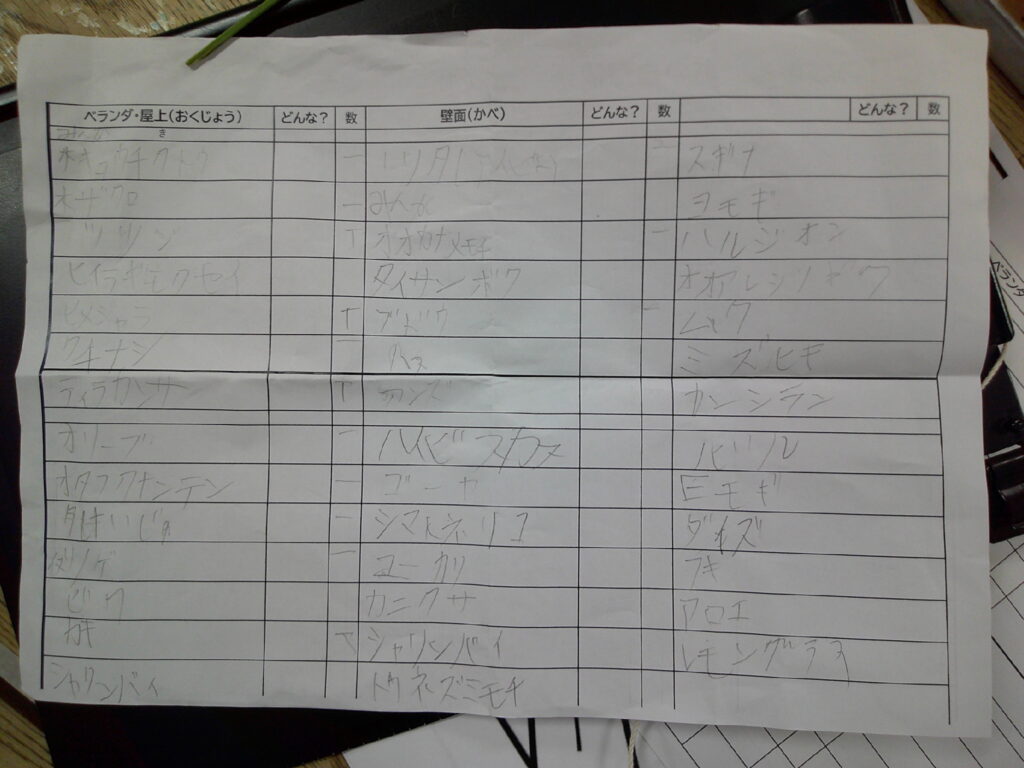 ベランダ・屋上(おくじょう) どんな? 数 壁面(かべ) どんな? 数 どんな? 数
き
キョウチクトウ 一 スギナ
一 みんな ヨモギ
ツツジ T オオカナメモチ 一 ハルジオン
ヒイラギモクセイ タイサンボク オオアレジノギク
ヒメシャラ T ブドウ 一
クチナシ 一 ハス ミズヒキ
T カンシラン
オリーブ 一 ハイビスカス バジル
オタフクナンテン 一 ゴーヤ ヨモギ
一 シマトネリコ ダイズ
一 ユーカリ フキ
ビワ カニクサ アロエ
カキ T シャリンバイ レモングラス
シャリンバイ トウネズミモチ
ベランダ